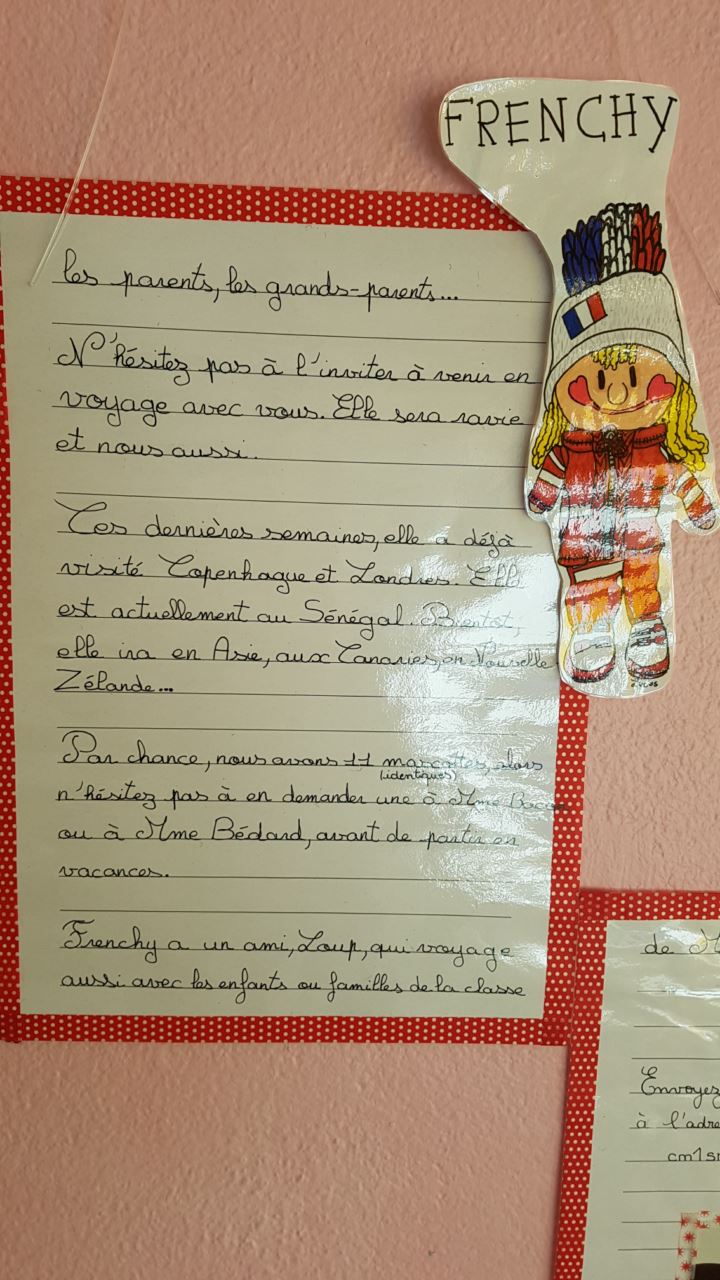 FRENCHY
les parents, les grands-parents...
N'hésitez pas à l'inviter à venir en
voyage avec vous. Elle sera ravie
et nous aussi.
Ces dernières semaines, elle a déjà
visité Copenhague et Londres. Elle
est actuellement au Sénégal. Bientôt,
elle ira en Asie, aux Canaries, en Nouvelle
Zélande...
Par chance, nous avons 11 mascottes, alors
(identiques)
n'hésitez pas à en demander une à Mme
ou à Mme Bédard, avant de partir en
vacances.
Frenchy a un ami, Loup, qui voyage
aussi avec les enfants ou familles de la classe
de
Envoyez
à l'adre